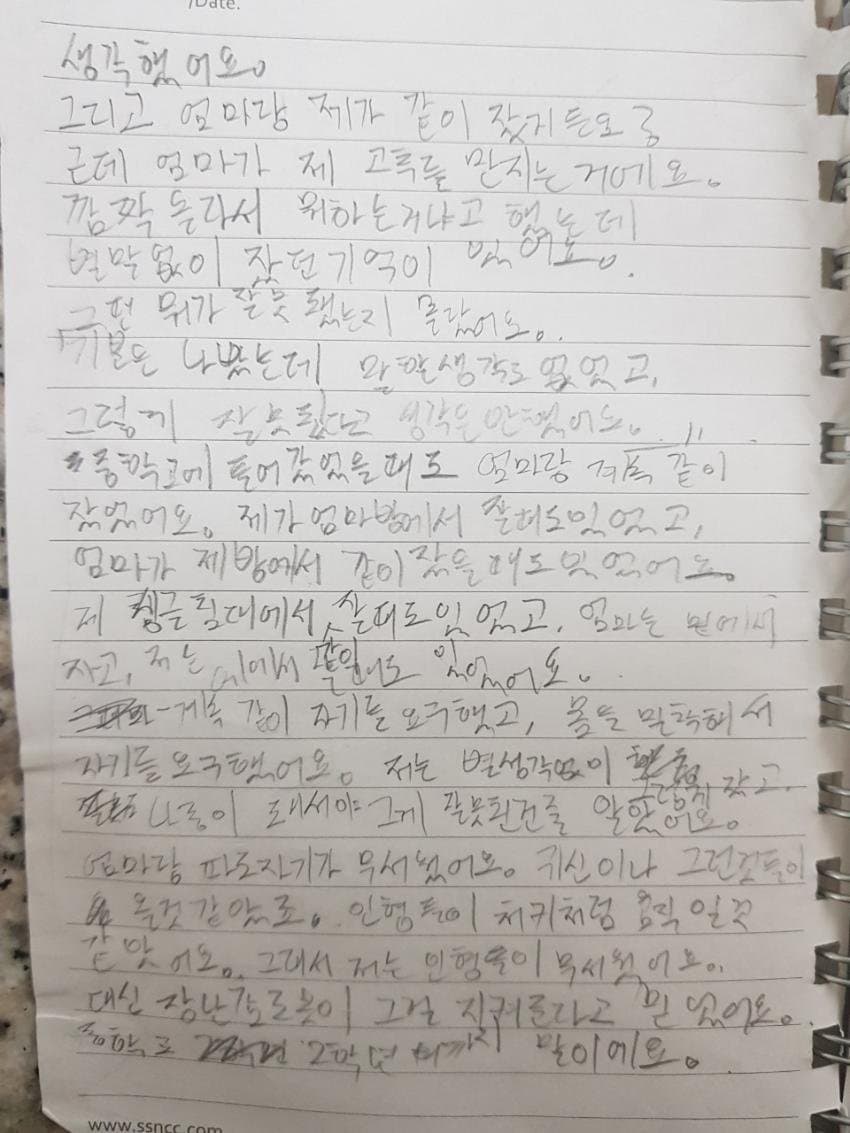 /Date.
생각했어요.
그리고 엄마랑 제가 같이 잤거든요
근데 엄마가 제 만지는거에요.
깜짝 놀라서 뭐하는거냐고 했는데
별막없이 잤던기억이 있어요.
그땐 뭐가 잘못됐는지 몰랐어요.
기분은 나빴는데 말할생각도 없었고,
그렇게 잘못됐다고 생각은안했어요.
중학교에 들어갔었을때도 엄마랑 계속 같이
잤었어요. 제가엄마방에서 잘때도있었고,
엄마가 제방에서 같이잤을때도있었어요.
제 침대에서 잘때도있었고, 엄마는 밑에서
자고, 저는 위에서 있었어요.
계속 같이 자기를 요구했고, 몸을 밀착해서
자기를요구했어요. 저는 별생각없이 그렇게 잤고.
나중이 돼서야 그게 잘못된건줄 알았어요.
엄마랑 따로자기가 무서웠어요. 귀신이나 그런것들이
올것같았고. 인형들이 처키처럼 움직일것
같았어요. 그래서 저는 인형들이 무서웠어요.
대신 장난감로봇이 그걸 지켜준다고 믿었어요.
2학년 때까지 말이에요.
www.ssncc.com